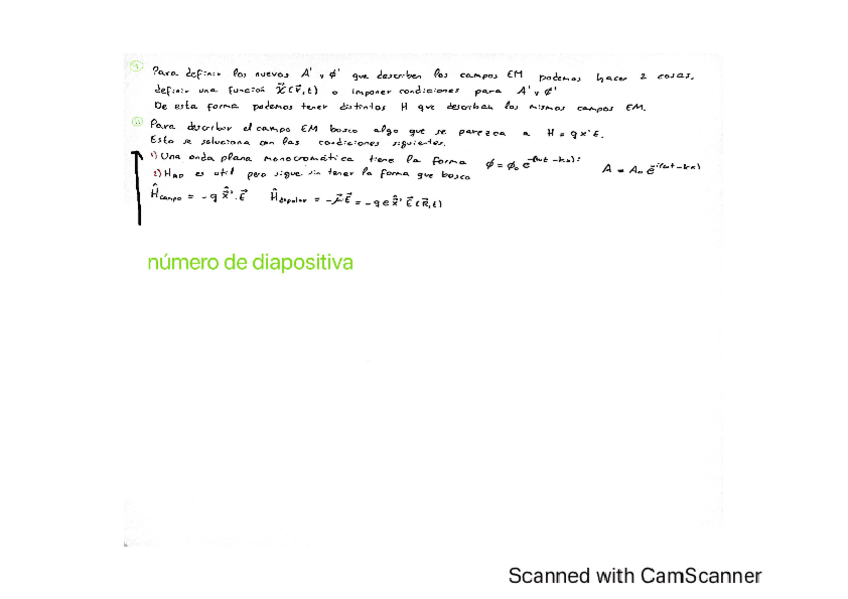 Para definir los nuevos A' y φ' que describen los campos EM podemos hacer 2 cosas,
definir una función χ(r⃗,t) o imponer condiciones para A' y φ'
De esta forma podemos tener distintos H que describan los mismos campos EM.
Para describir el campo EM busco algo que se parezca a H = q x' E.
Esto se soluciona con las condiciones siguientes.
1) Una onda plana monocromática tiene la forma φ = φ₀ e^-i(wt-kx); A = A₀ e^-i(wt-kx)
2) H es util pero sigue sin tener la forma que busco
Ĥcampo = -q x̂'·E⃗ Ĥdipolar = -μ⃗E⃗ = -q e x̂' E⃗(R⃗,t)
número de diapositiva
Scanned with CamScanner